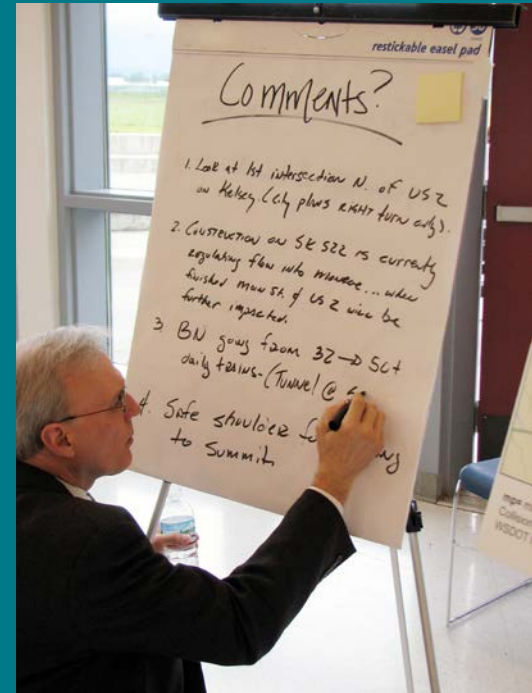 restickable easel pad
Comments?
1. Look at 1st intersection N. of US 2
on Kelsey. (City plans RIGHT turn only).
2. Construction on SR 522 is currently
regulating flow into Monroe... when
finished main St. & US 2 will be
further impacted.
3. BN going from 32 → 50+
daily trains- (Tunnel @
4. Safe shoulder
to Summit
WSDOT